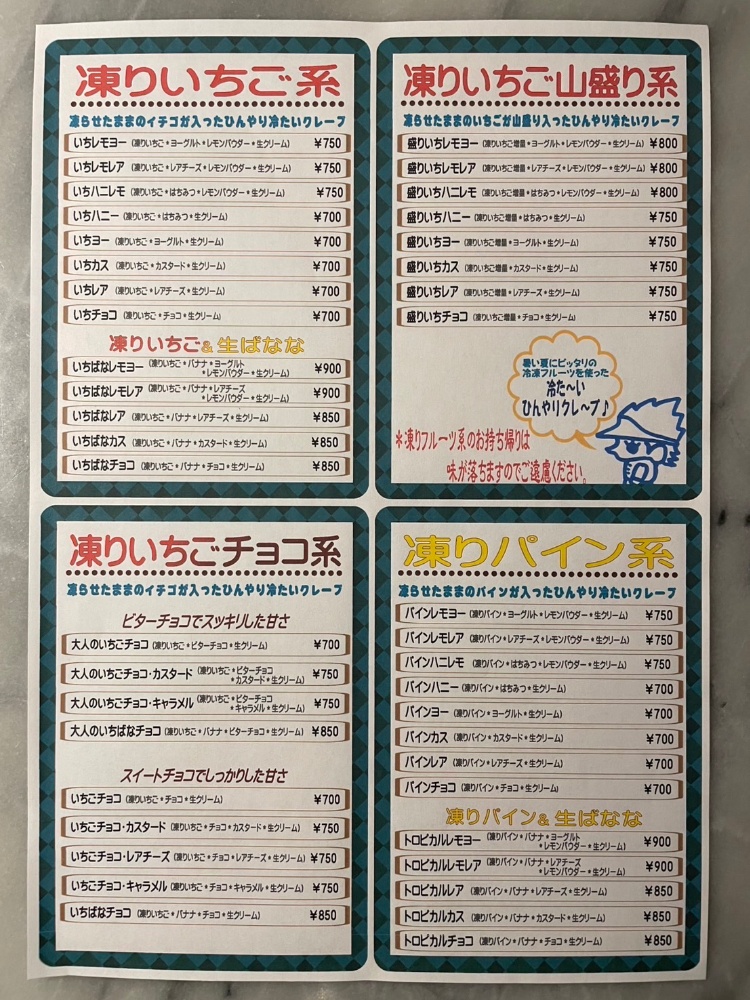 凍りいちご系
凍らせたままのイチゴが入ったひんやり冷たいクレープ
いちレモヨー (凍りいちご*ヨーグルト*レモンパウダー*生クリーム) ¥750
いちレモレア (凍りいちご*レアチーズ*レモンパウダー*生クリーム) ¥750
いちハニレモ (凍りいちご*はちみつ*レモンパウダー*生クリーム) ¥750
いちハニー (凍りいちご*はちみつ*生クリーム) ¥700
いちヨー (凍りいちご*ヨーグルト*生クリーム) ¥700
いちカス (凍りいちご*カスタード*生クリーム) ¥700
いちレア (凍りいちご*レアチーズ*生クリーム) ¥700
いちチョコ (凍りいちご*チョコ*生クリーム) ¥700
凍りいちご&生ばなな
いちばなレモヨー (凍りいちご*バナナ*ヨーグルト
*レモンパウダー*生クリーム) ¥900
いちばなレモレア (凍りいちご*バナナ*レアチーズ
*レモンパウダー*生クリーム) ¥900
いちばなレア (凍りいちご*バナナ*レアチーズ*生クリーム) ¥850
いちばなカス (凍りいちご*バナナ*カスタード*生クリーム) ¥850
いちばなチョコ (凍りいちご*バナナ*チョコ*生クリーム) ¥850
凍りいちご山盛り系
凍らせたままのいちごが山盛り入ったひんやり冷たいクレープ
盛りいちレモヨー (凍りいちご増量*ヨーグルト*レモンパウダー*生クリーム) ¥800
盛りいちレモレア (凍りいちご増量*レアチーズ*レモンパウダー*生クリーム) ¥800
盛りいちハニレモ (凍りいちご増量*はちみつ*レモンパウダー*生クリーム) ¥800
盛りいちハニー (凍りいちご増量*はちみつ*生クリーム) ¥750
盛りいちヨー (凍りいちご増量*ヨーグルト*生クリーム) ¥750
盛りいちカス (凍りいちご増量*カスタード*生クリーム) ¥750
盛りいちレア (凍りいちご増量*レアチーズ*生クリーム) ¥750
盛りいちチョコ (凍りいちご増量*チョコ*生クリーム) ¥750
暑い夏にピッタリの
冷凍フルーツを使った
冷た〜い
ひんやりクレープ♪
*凍りフルーツ系のお持ち帰りは
味が落ちますのでご遠慮ください。
凍りいちごチョコ系
凍らせたままのイチゴが入ったひんやり冷たいクレープ
ビターチョコでスッキリした甘さ
大人のいちごチョコ (凍りいちご*ビターチョコ*生クリーム) ¥700
大人のいちごチョコ・カスタード (凍りいちご*ビターチョコ
*カスタード*生クリーム) ¥750
大人のいちごチョコ・キャラメル (凍りいちご*ビターチョコ
*キャラメル*生クリーム) ¥750
大人のいちばなチョコ (凍りいちご*バナナ*ビターチョコ*生クリーム) ¥850
スイートチョコでしっかりした甘さ
いちごチョコ (凍りいちご*チョコ*生クリーム) ¥700
いちごチョコ・カスタード (凍りいちご*チョコ*カスタード*生クリーム) ¥750
いちごチョコ・レアチーズ (凍りいちご*チョコ*レアチーズ*生クリーム) ¥750
いちごチョコ・キャラメル (凍りいちご*チョコ*キャラメル*生クリーム) ¥750
いちばなチョコ (凍りいちご*バナナ*チョコ*生クリーム) ¥850
凍りパイン系
凍らせたままのパインが入ったひんやり冷たいクレープ
パインレモヨー (凍りパイン*ヨーグルト*レモンパウダー*生クリーム) ¥750
パインレモレア (凍りパイン*レアチーズ*レモンパウダー*生クリーム) ¥750
パインハニレモ (凍りパイン*はちみつ*レモンパウダー*生クリーム) ¥750
パインハニー (凍りパイン*はちみつ*生クリーム) ¥700
パインヨー (凍りパイン*ヨーグルト*生クリーム) ¥700
パインカス (凍りパイン*カスタード*生クリーム) ¥700
パインレア (凍りパイン*レアチーズ*生クリーム) ¥700
パインチョコ (凍りパイン*チョコ*生クリーム) ¥700
凍りパイン&生ばなな
トロピカルレモヨー (凍りパイン*バナナ*ヨーグルト
*レモンパウダー*生クリーム) ¥900
トロピカルレモレア (凍りパイン*バナナ*レアチーズ
*レモンパウダー*生クリーム) ¥900
トロピカルレア (凍りパイン*バナナ*レアチーズ*生クリーム) ¥850
トロピカルカス (凍りパイン*バナナ*カスタード*生クリーム) ¥850
トロピカルチョコ (凍りパイン*バナナ*チョコ*生クリーム) ¥850